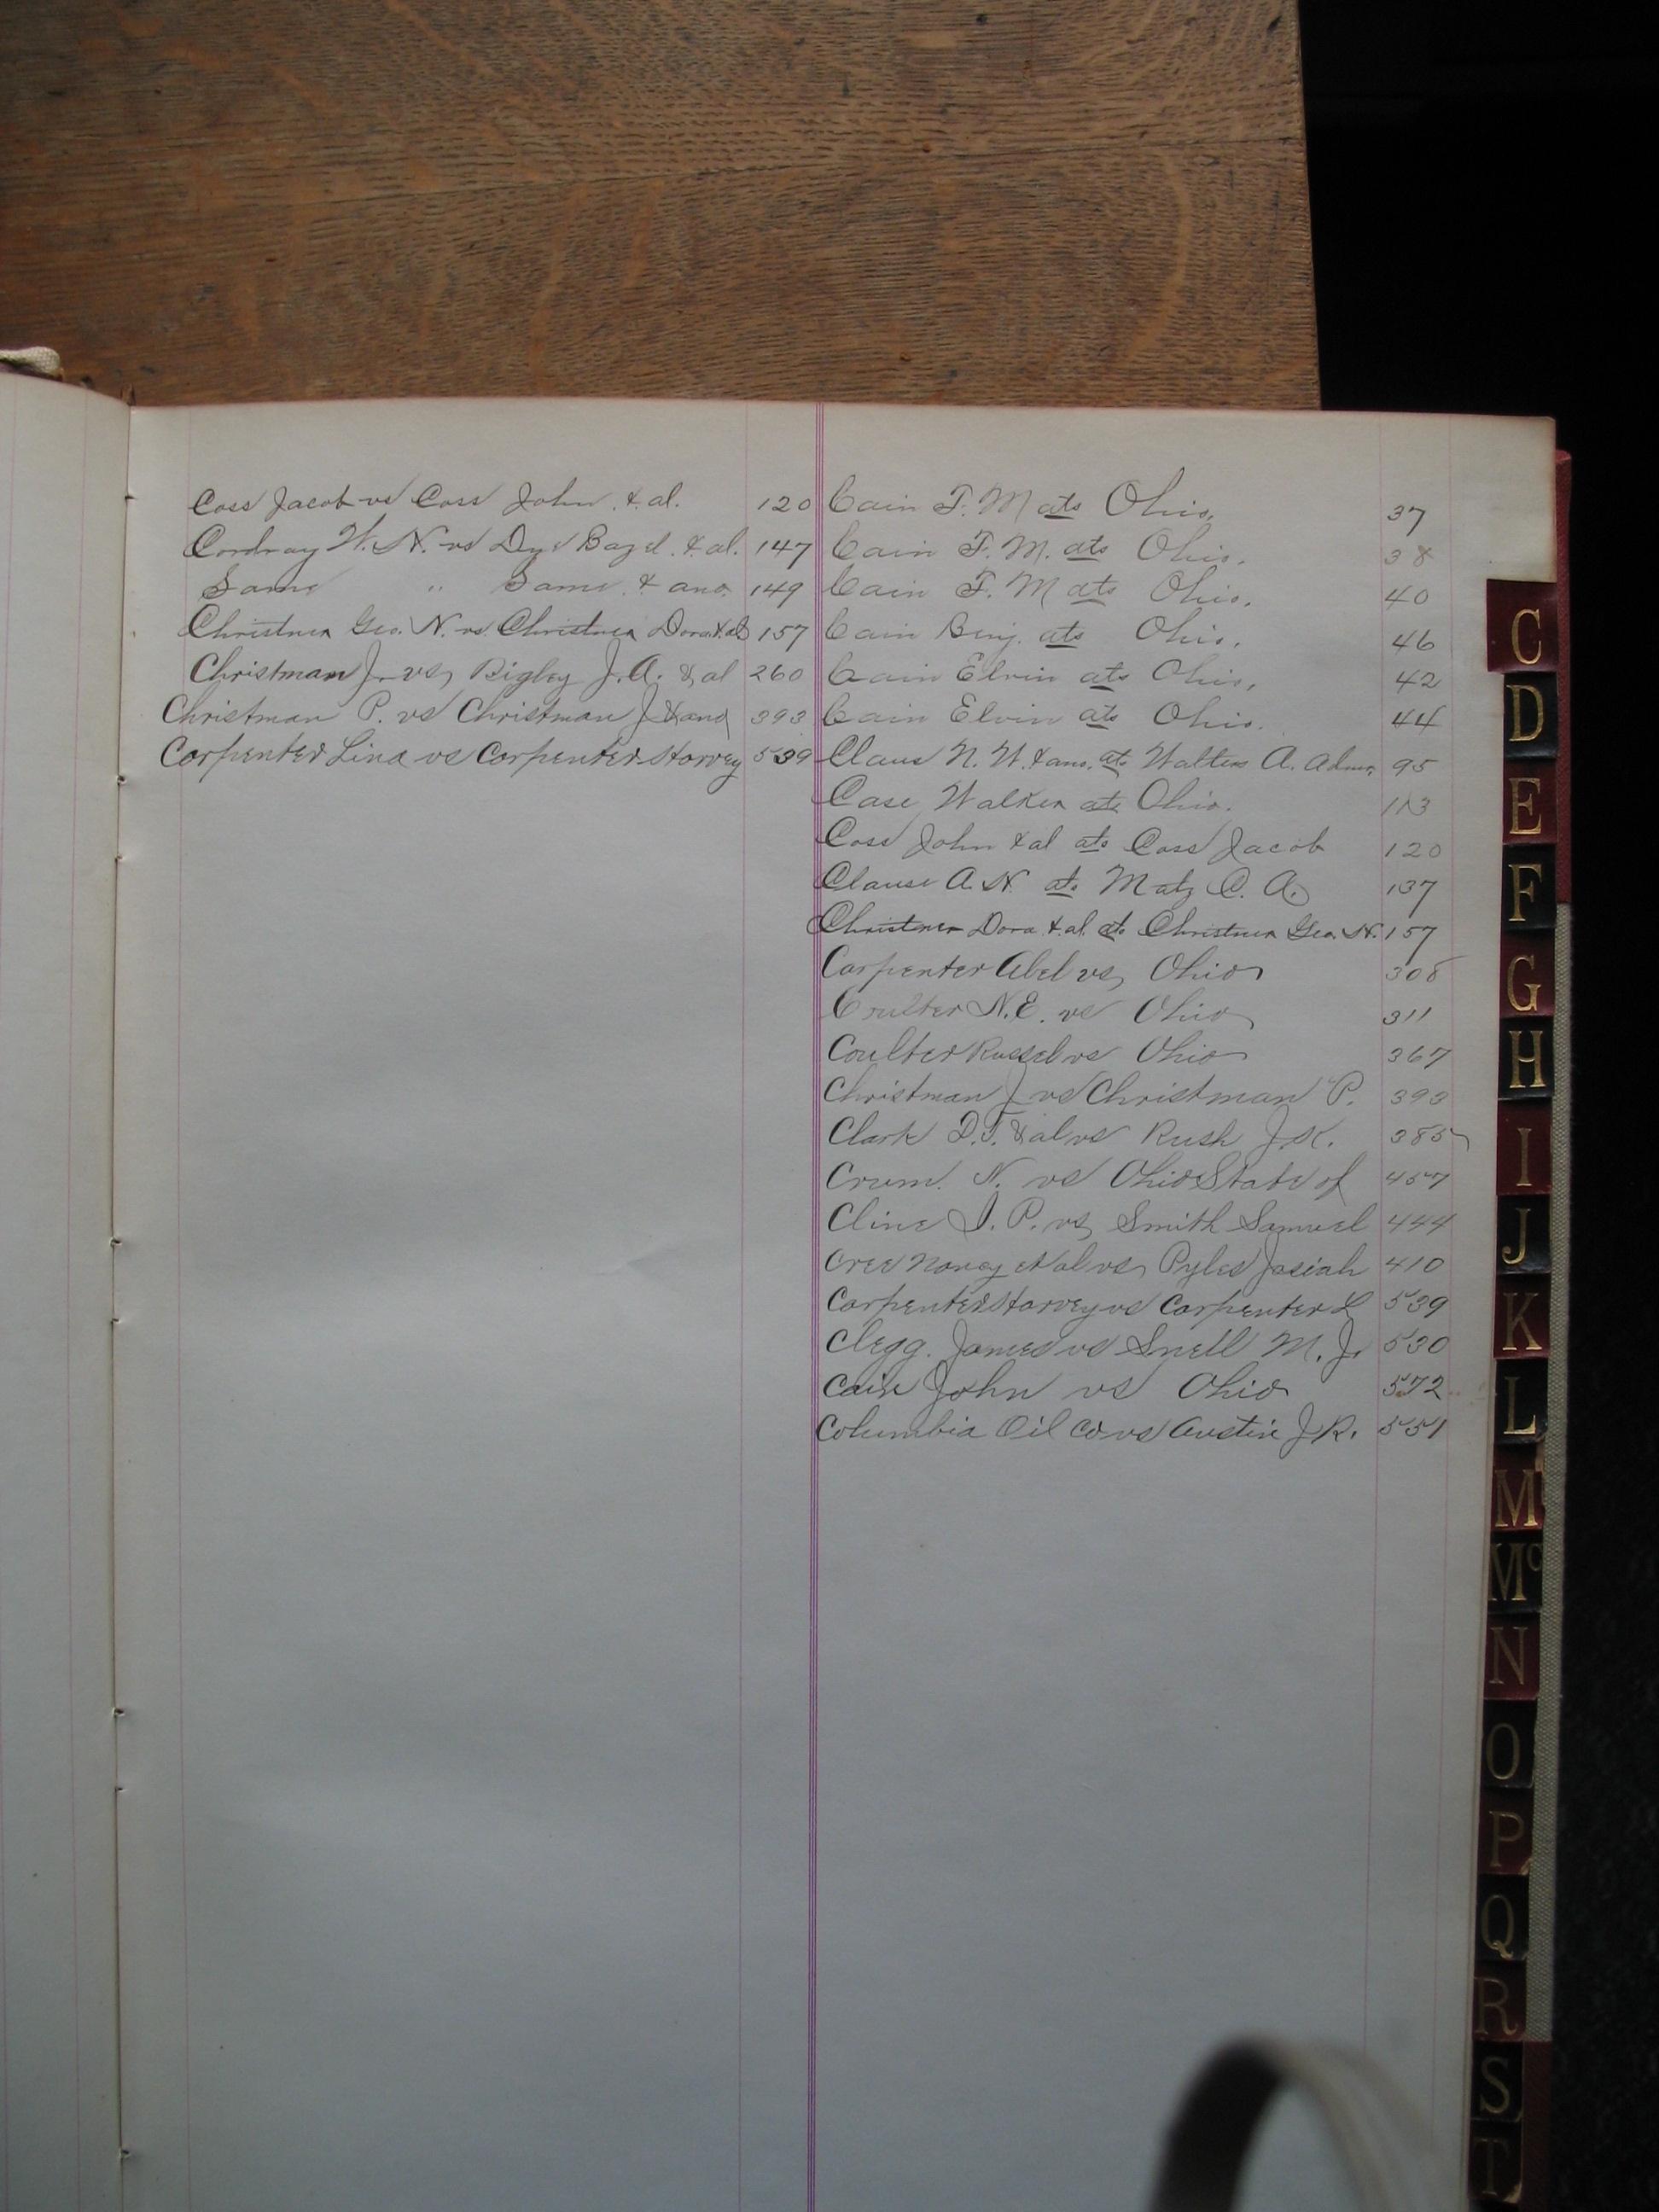 Coss Jacob vs Coss John. & al. 120
Cordray W. N. vs Dye Bazel. & al. 147
Same " Same. & ano. 149
Christner Geo. N. vs. Christner Dora & al 157
Christman J. vs, Bigley J. A. & al 260
Christman P. vs Christman J. & ano 393
Carpenter Lina vs Carpenter Harvey 539
Cain F. M ats Ohio. 37
Cain F. M. ats Ohio. 38
Cain F. M ats Ohio. 40
Cain Benj. ats Ohio. 46
Cain Elvin ats Ohio. 42
Cain Elvin ats Ohio. 44
Claus N. W. & ano. ats Walters A. Admr. 95
Case Walker ats Ohio. 113
Coss John & al ats Coss Jacob 120
Clause A. N. ats Matz C. A. 137
Christner Dora & al. ats Christner Geo. N. 157
Carpenter Abel vs, Ohio 308
Coulter N. E. vs Ohio 311
Coulter Russel vs Ohio 367
Christman J vs Christman P. 393
Clark D. T. & al vs Rush J. K. 385
Crum. N. vs Ohio State of 457
Cline I. P. vs, Smith Samuel 444
Cree Nancy et al vs, Pyles Josiah 410
Carpenter Harvey vs Carpenter L 539
Clegg. James vs Snell M. J. 530
Cain John vs Ohio 572
Columbia Oil Co vs Austin J. R. 551
C
D
E
F
G
H
I
J
K
L
M
Mc
N
O
P
Q
R
S
T